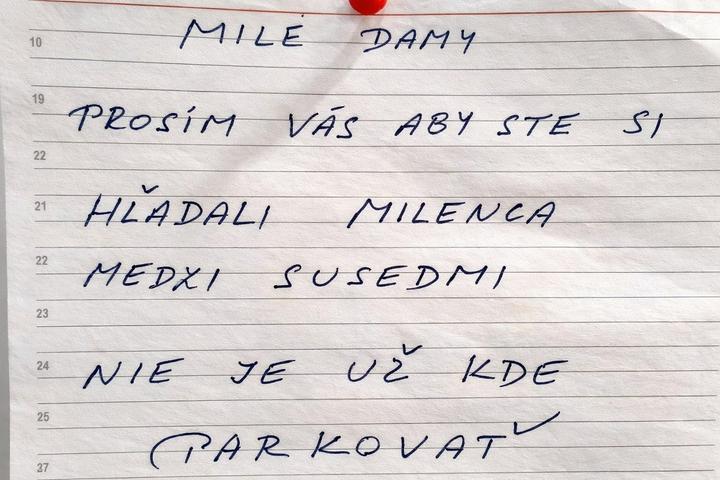 10
MILÉ DAMY
19
PROSÍM VÁS ABY STE SI
22
21
HĽADALI MILENCA
22
MEDZI SUSEDMI
23
24
NIE JE UŽ KDE
25
PARKOVAŤ
27